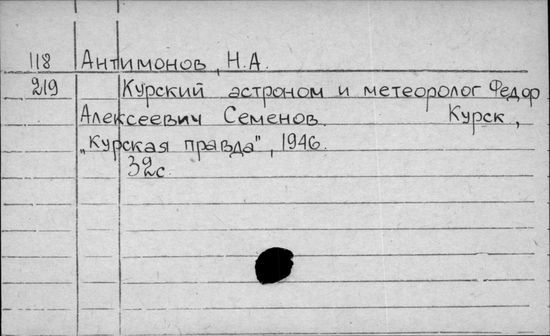 118 Антимонов, Н.А.
219 Курский астроном и метеоролог Федор
Алексеевич Семенов. Курск,
„Курская правда", 1946.
32с.